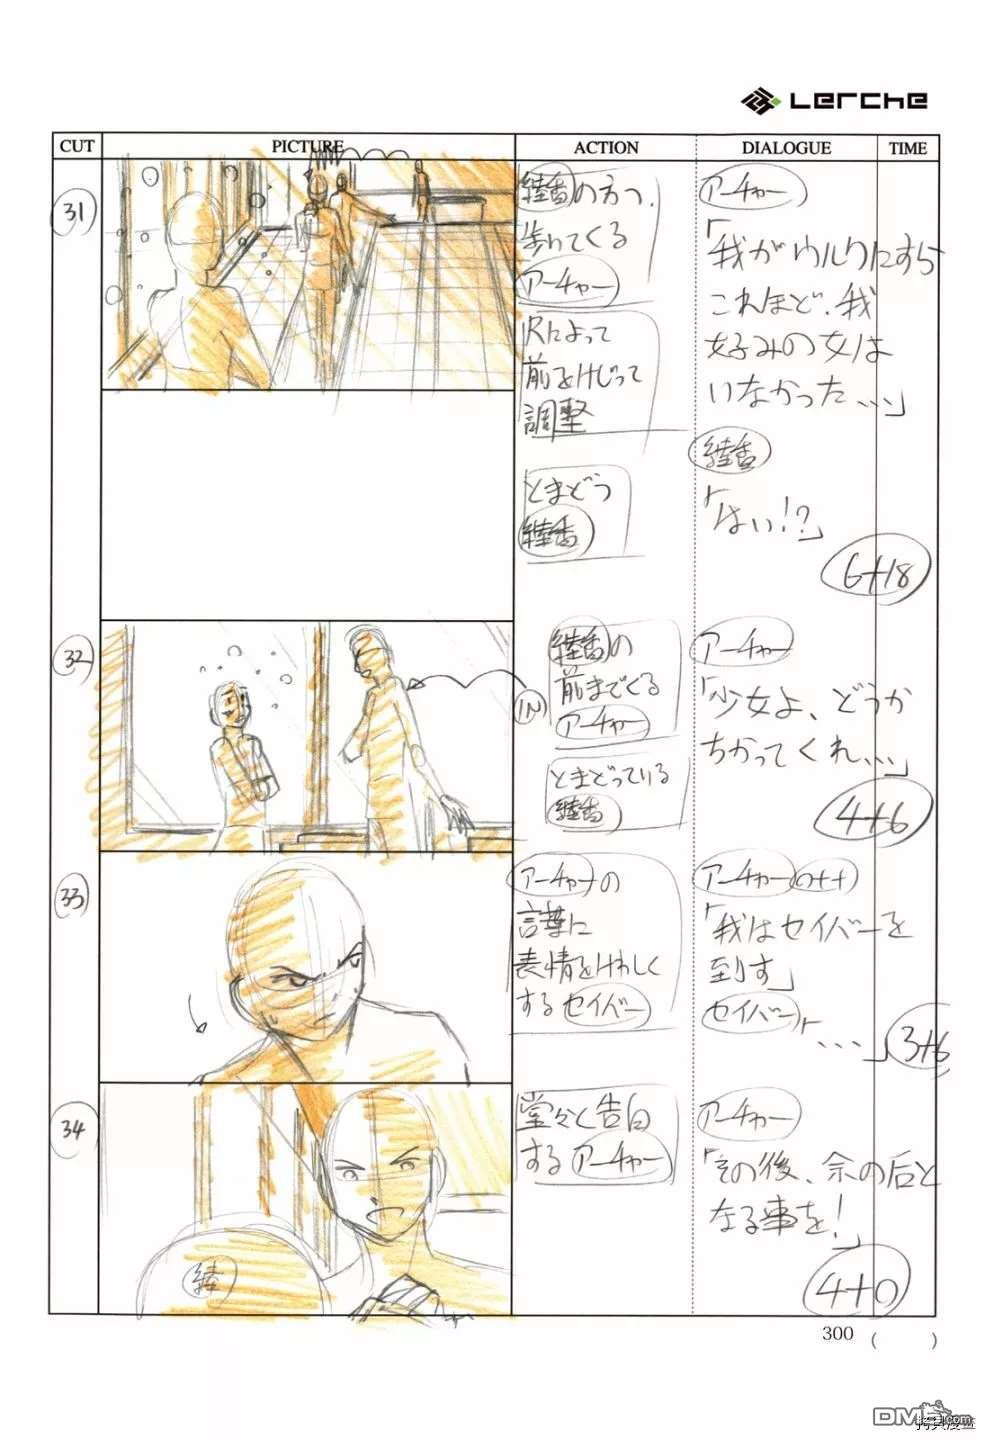 Lerche
CUT PICTURE ACTION DIALOGUE TIME
31
綾香の方へ
歩いてくる
アーチャー
尺によって
前をけずって
調整
とまどう
綾香
アーチャー
「我がウルクにすら
これほど、我
好みの女は
いなかった、、、」
綾香
「はい!?」
6+18
32
綾香の
前までくる
アーチャー
IN
とまどっている
綾香
アーチャー
「少女よ、どうか
ちかってくれ、、、」
4+6
33
アーチャーの
言葉に
表情をけわしく
するセイバー
アーチャー OFF
「我はセイバーを
到す」
セイバー「、、、」
3+6
34
綾
堂々と告白
するアーチャー
アーチャー
「その後、余の后と
なる事を!」
4+0
300 ( )
拷贝漫画